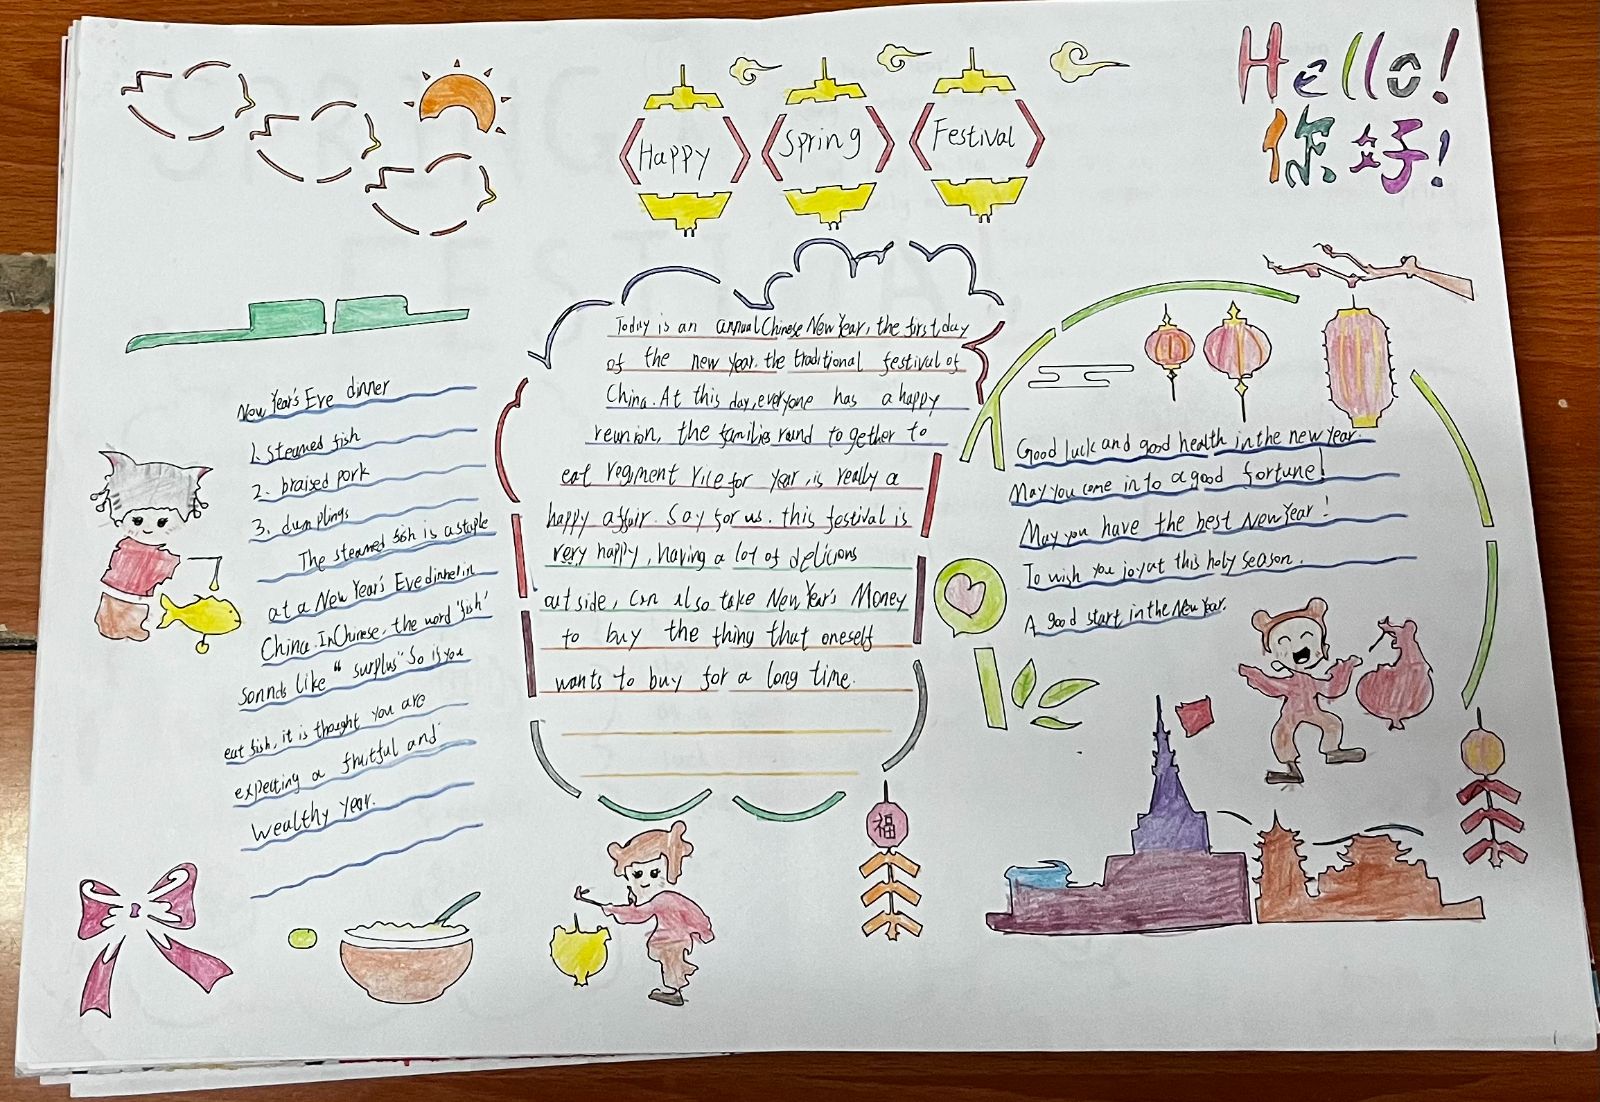 Happy Spring Festival
Hello!
你好!
New Year's Eve dinner
1. steamed fish
2. braised pork
3. dumplings
The steamed fish is a staple
at a New Year's Eve dinner in
China. In Chinese, the word 'fish'
sonnds like " surplus" So if you
eat fish, it is thought you are
expecting a fruitful and
wealthy year.
Today is an annual Chinese New Year, the first day
of the new year. the traditional festival of
China. At this day, everyone has a happy
reunion, the families round together to
eat regiment rice for year, is really a
happy affair. Say for us. this festival is
very happy, having a lot of delicious
out side, can also take New Year's Money
to buy the thing that oneself
wants to buy for a long time.
Good luck and good health in the new year.
May you come in to a good fortune!
May you have the best New Year!
To wish you joy at this holy season.
A good start in the New Year.
福